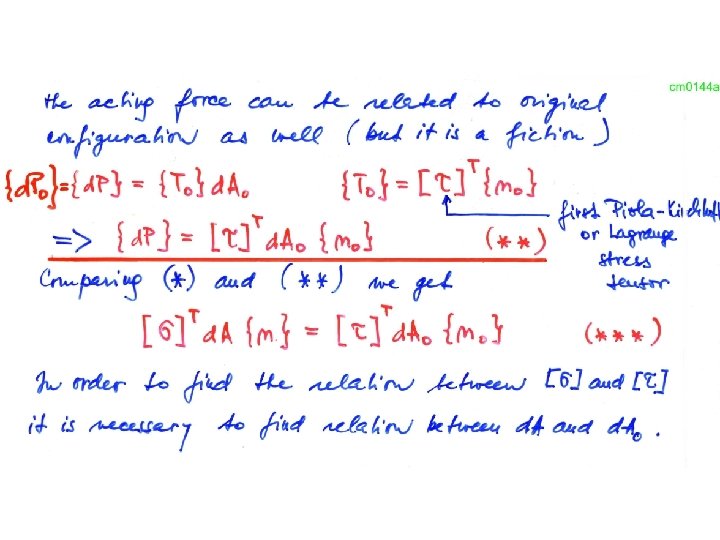 cm0144a
the acting force can be related to original
configuration as well (but it is a fiction)
{dP₀}={dP} = {T₀}dA₀ {T₀} = [τ]ᵀ{n₀}
first Piola-Kirchhoff
or Lagrange
stress
tensor
=> {dP} = [τ]ᵀdA₀{n₀} (**)
Comparing (*) and (**) we get
[σ]ᵀdA{n} = [τ]ᵀdA₀{n₀} (***)
In order to find the relation between [σ] and [τ]
it is necessary to find relation between dA and dA₀.